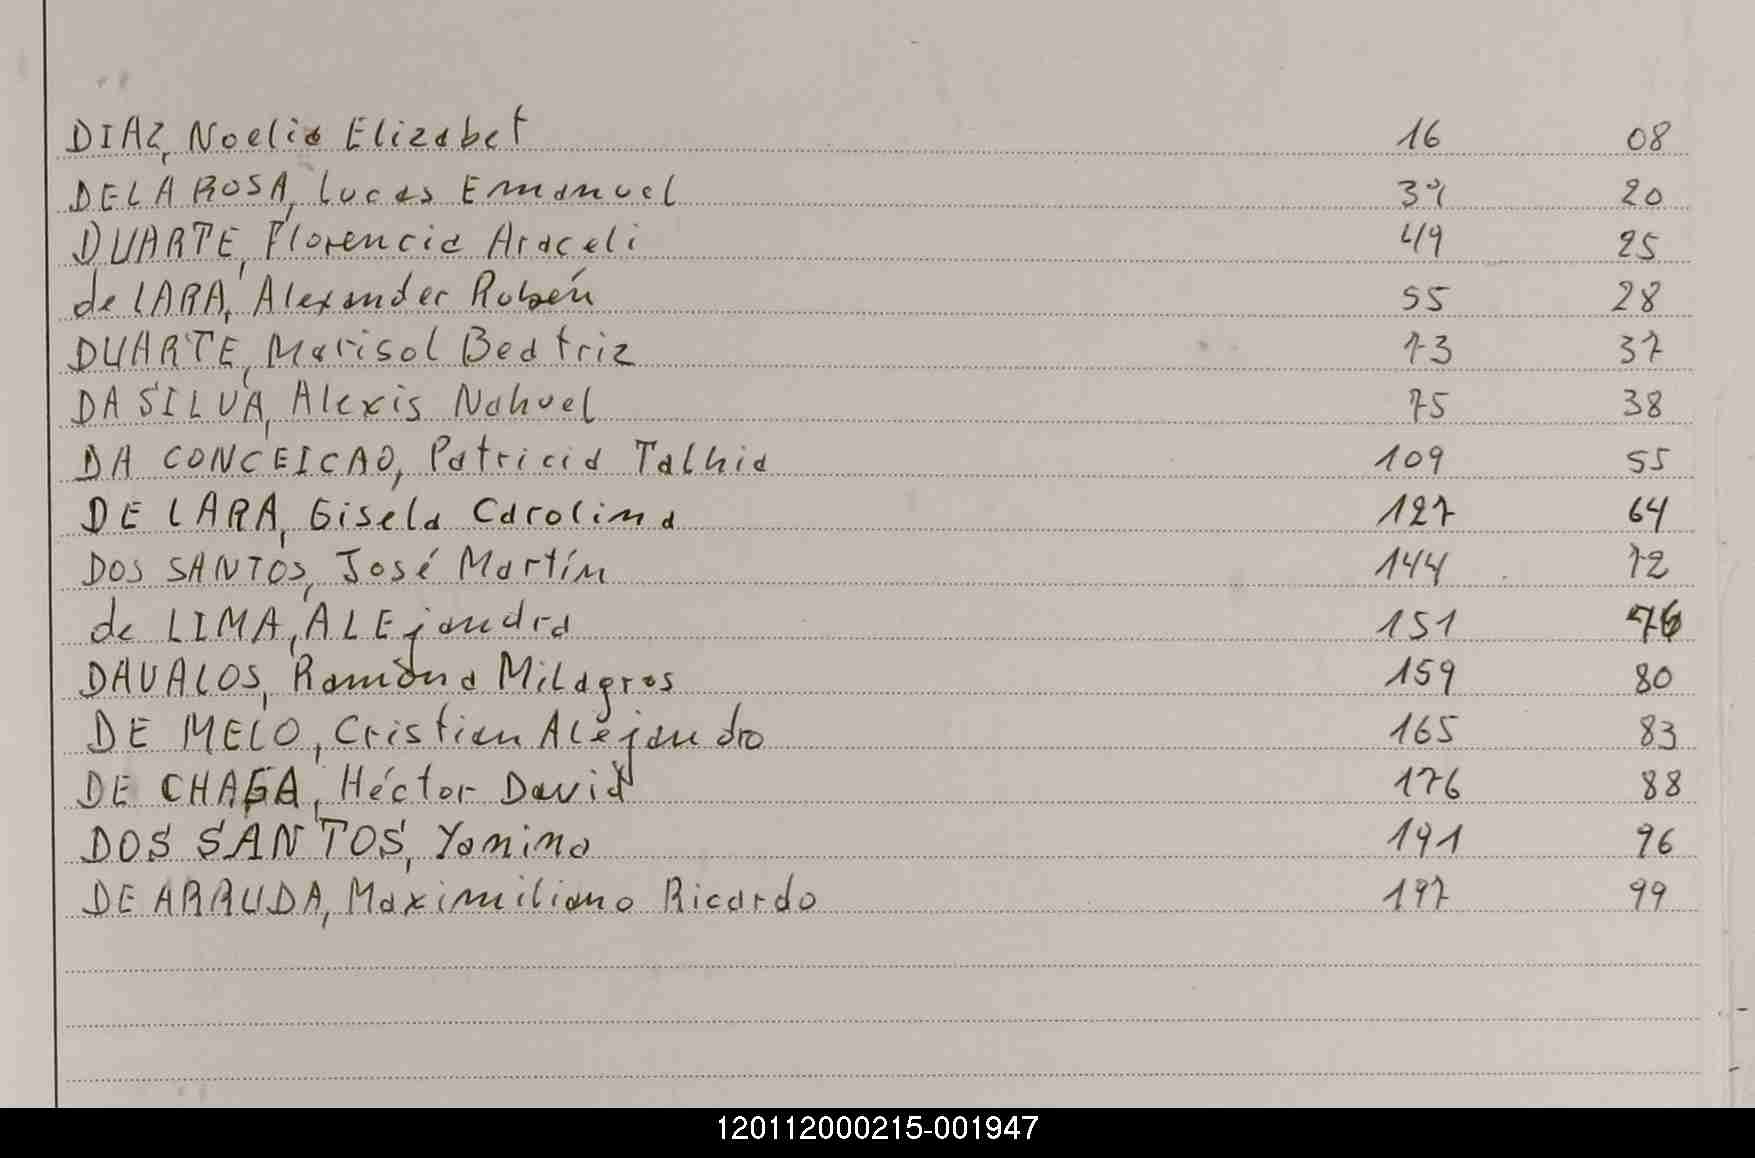 DIAZ, Noelia Elizabet 16 08
DE LA ROSA, Lucas Emanuel 39 20
DUARTE, Florencia Araceli 49 25
de LARA, Alexander Rubén 55 28
DUARTE, Marisol Beatriz 73 37
DA SILVA, Alexis Nahuel 75 38
DA CONCEICAO, Patricia Talhia 109 55
DE LARA, Gisela Carolina 127 64
DOS SANTOS, José Martín 144 72
de LIMA, ALEjandra 151 76
DAVALOS, Ramona Milagros 159 80
DE MELO, Cristian Alejandro 165 83
DE CHAGA, Héctor David 176 88
DOS SANTOS, Yanina 191 96
DE ARRUDA, Maximiliano Ricardo 197 99
120112000215-001947